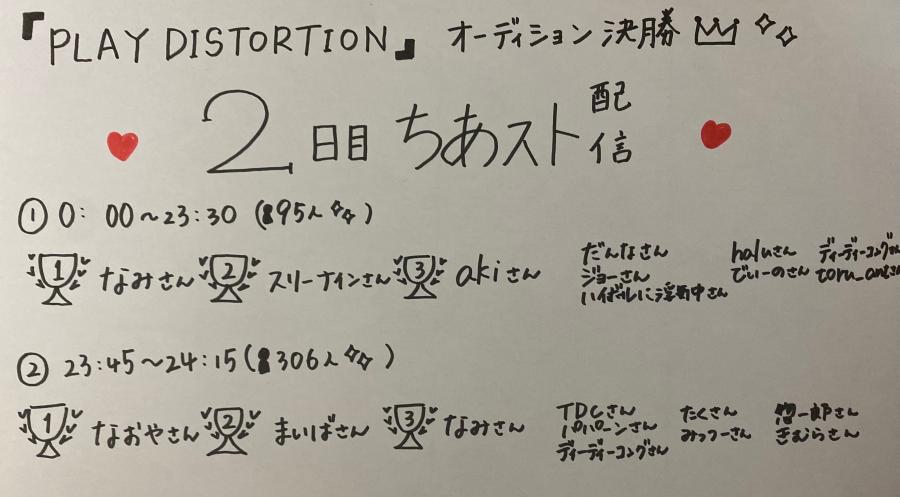 『PLAY DISTORTION』 オーディション 決勝
2日目 ちあスト 配信
① 0:00~23:30 (95人)
1 なみさん 2 スリーナインさん 3 akiさん
だんなさん haluさん ディーディーコングさん
ジョーさん でぃーのさん
② 23:45~24:15 (306人)
1 なおやさん 2 まいばさん 3 なみさん
TDCさん たくさん 惣一郎さん
パパーンさん みっつーさん きむらさん
ディーディーコングさん